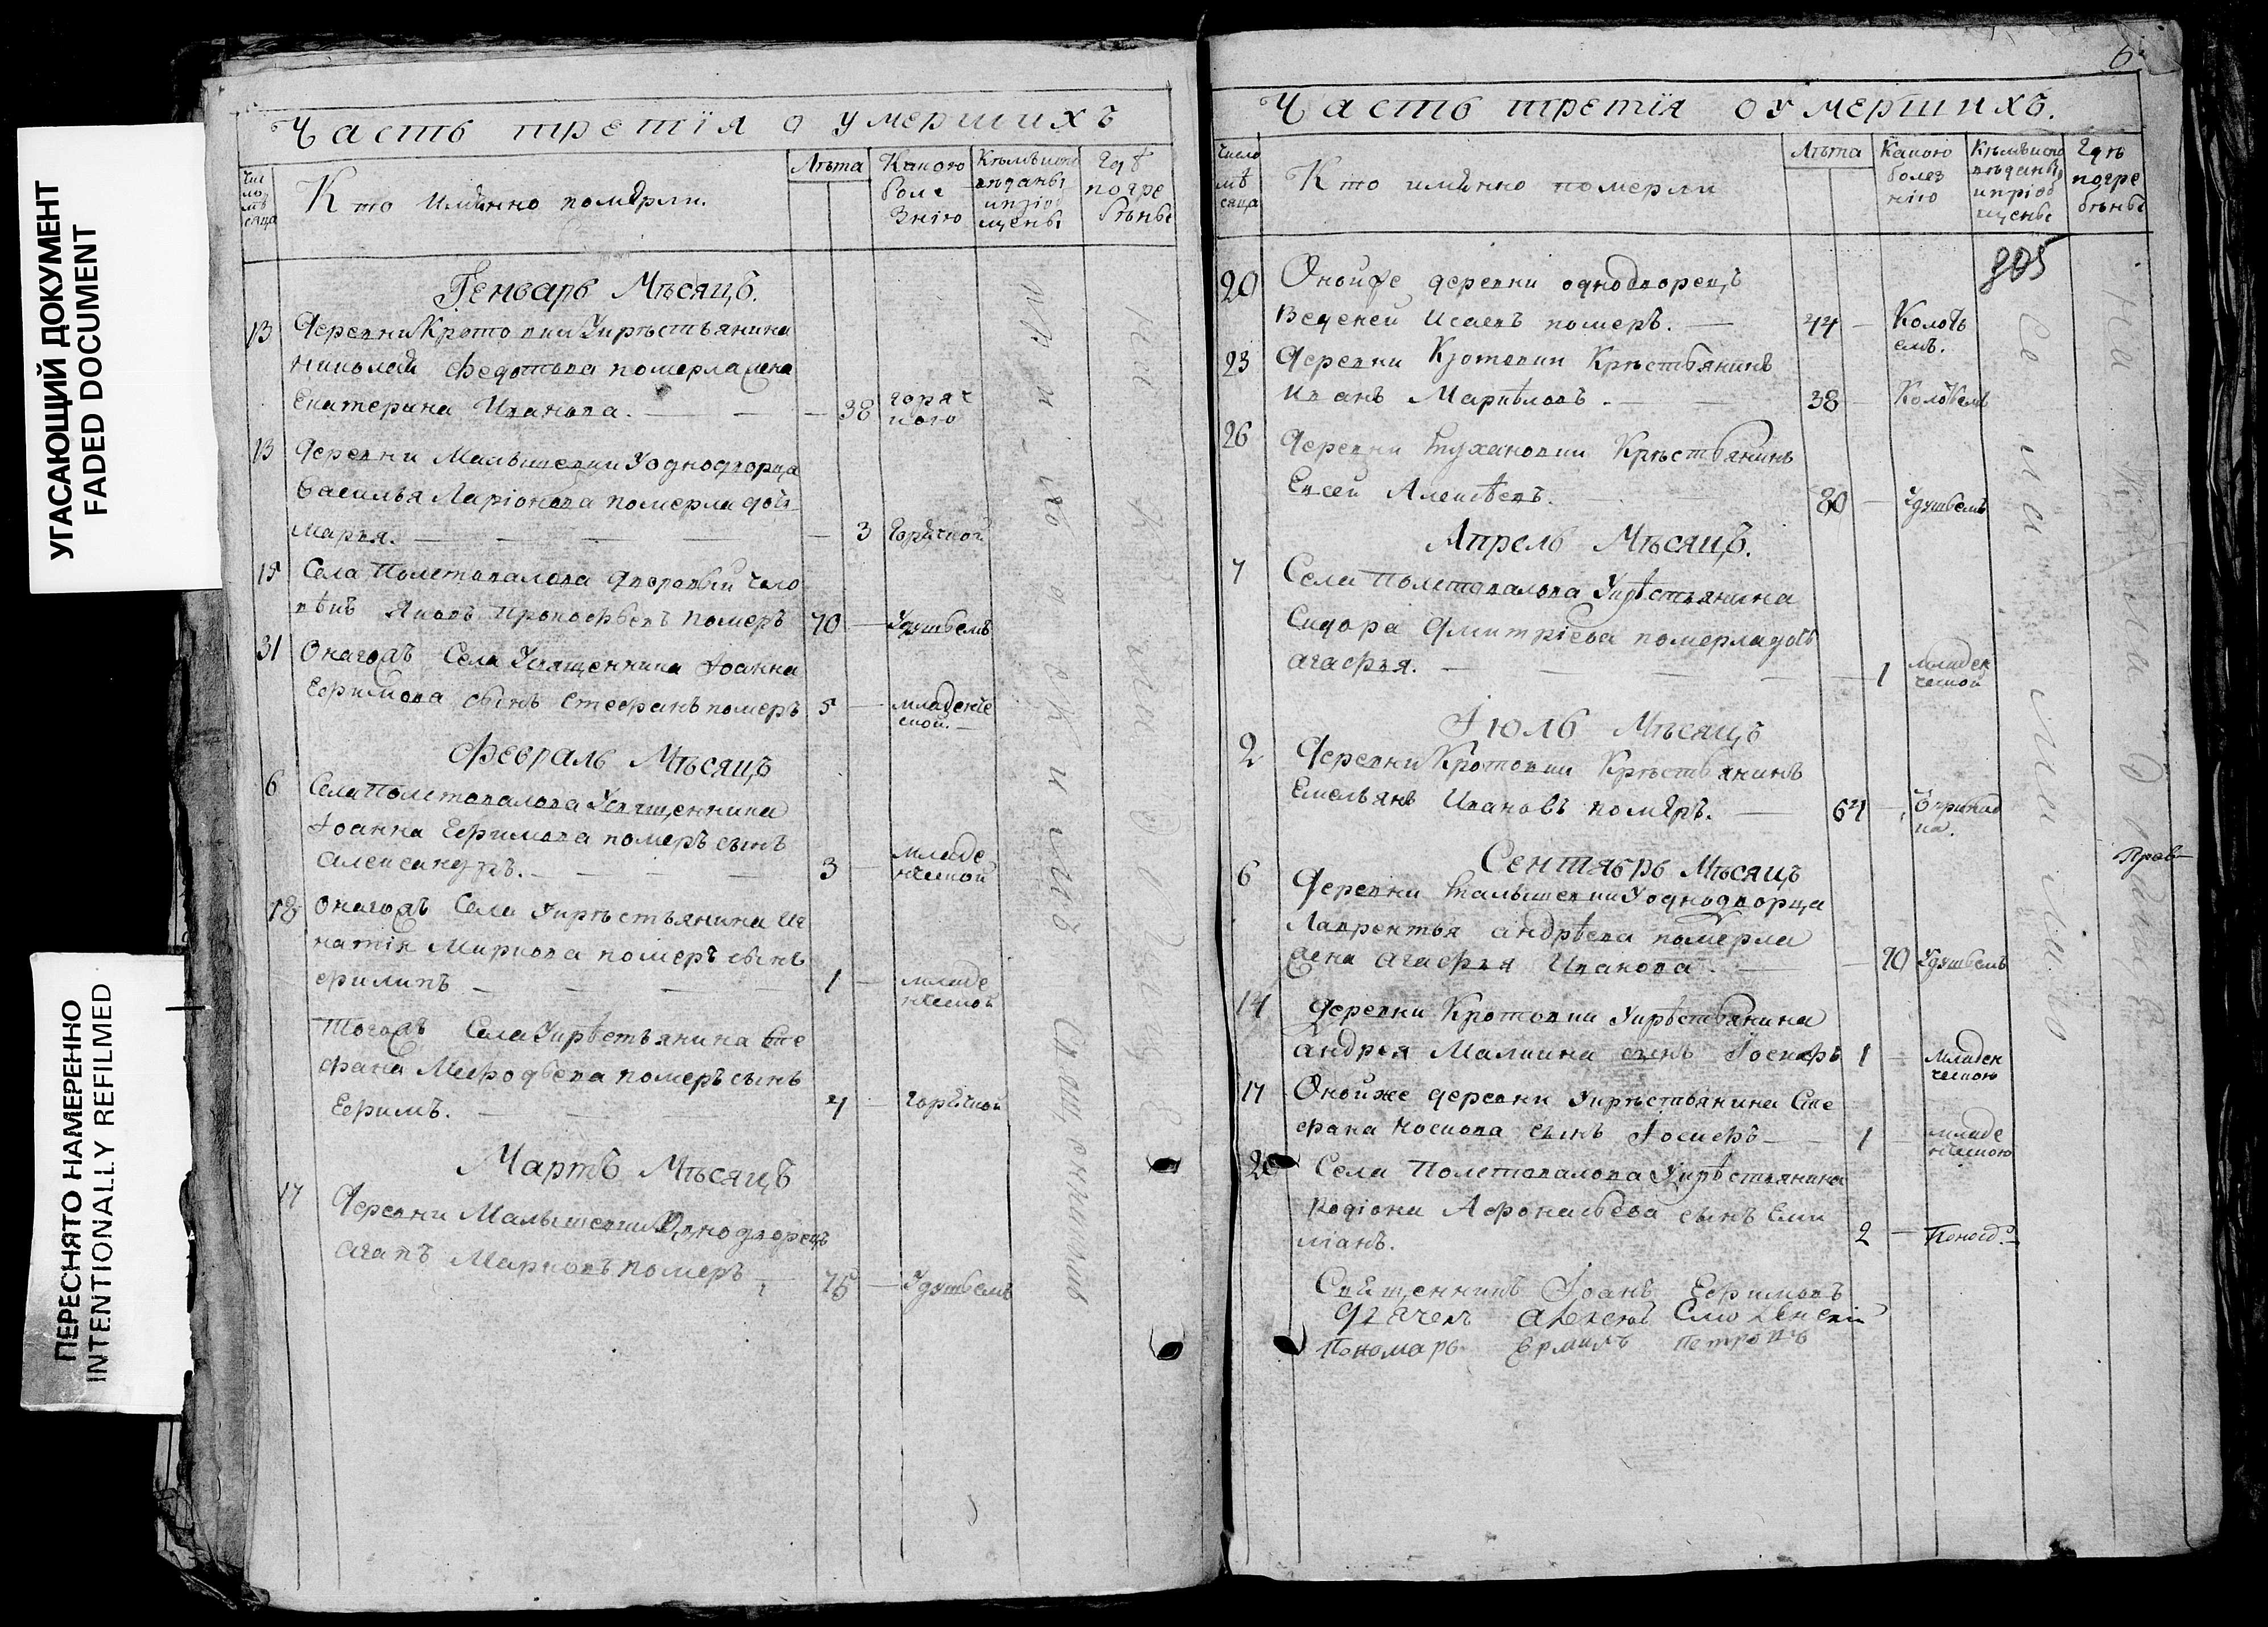 УГАСАЮЩИЙ ДОКУМЕНТ
FADED DOCUMENT
ПЕРЕСНЯТО НАМЕРЕННО
INTENTIONALLY REFILMED
Часть третїя о умершихъ
Число мѣсяца
Кто имянно померли.
Лѣта
Какою болезнїю
Гдѣ погребѣны
Генварь Мѣсяцъ.
13 Деревни Кротовки Укрѣстьянина
Николая Федотова померла жена
Екатерина Иванова. — 38 горячкою
13 Деревни Малышевки Уоднодворца
Василья Ларїонова померла дочь
Марья. — 3 Горячкой
15 Села Полетовалова дворовый чело
вѣкъ Яковъ Прокофьевъ померъ 70 — Удушьемъ
31 Онагожъ Села Усвященника Іоанна
Ефимова сынъ Стефанъ померъ 5 — младенческой.
Февраль Мѣсяцъ
6 Села Полетовалова Усвященника
Іоанна Ефимова померъ сынъ
Александръ. — 3 — младенческой
18 Онагожъ Села Укрѣстьянина Иг
натїя Миркова померъ сынъ
Филипъ — 1 — младенческой
Тогожъ Села Укрѣстьянина Сте
фана Мефодьева померъ сынъ
Ефимъ. — 4 Горячкой
Мартъ Мѣсяцъ
17 Деревни Малышевки Однодворецъ
Агапъ Марковъ померъ 75 — Удушьемъ
6
Часть третїя о умершихъ.
Число мѣсяца
Кто имянно померли
Лѣта
Какою болезнїю
Гдѣ погребѣны
805
20 Онойже деревни однодворецъ
Веденей Исаевъ померъ. — 44 — Колотьемъ.
23 Деревни Кротовки Крѣстьянинъ
Иванъ Маркѣловъ. — 38 — Колотьемъ
26 Деревни Крѣстьянинъ
Евсей Алексѣевъ. — 80 — Удушьемъ
Апрель Мѣсяцъ.
7 Села Полетовалова Укрѣстьянина
Сидора Дмитрїева померла дочь
Агафья. — 1 младенческой
Іюль Мѣсяцъ
2 Деревни Кротовки Крѣстьянинъ
Емельянъ Ивановъ померъ. — 64
Сентябрь Мѣсяцъ
6 Деревни Малышевки Уоднодворца
Лаврентья Андрѣева померла
жена Агафья Иванова. — 70 Удушьемъ
14 Деревни Кротовки Укрѣстьянина
Андрея Малкина сынъ Іосифъ 1 — младенческою
17 Онойже деревни Укрѣстьянина Сте
фана Носкова сынъ Іосифъ — 1 — младенческою
20 Села Полетовалова Укрѣстьянина
Родїона Афонасьева сынъ Еми
лїанъ. 2 —
Священникъ Іоанъ Ефимовъ
Дьячекъ Алексей Смоленскїй
Пономарь Ермилъ Петровъ